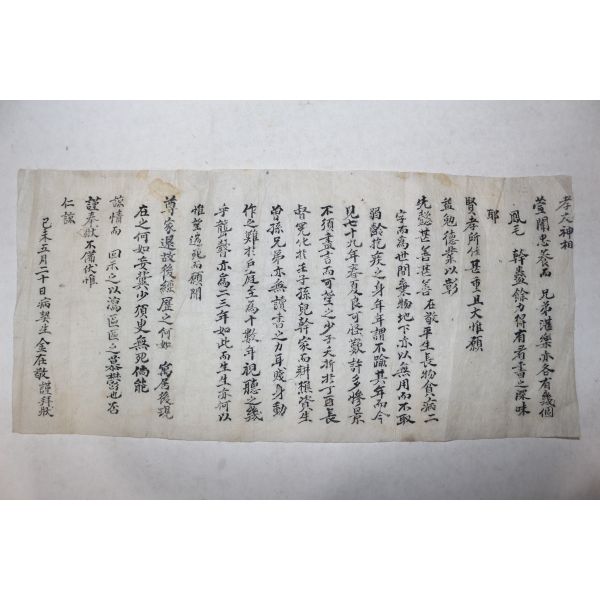 孝天神相
螢闈忠養而 兄弟湛樂亦各有幾個
鳳毛 幹蠱餘力得有看書之深味
耶
賢孝所係甚重且大惟願
益勉德業以彰
先懿甚善甚善 在敬平生長物貧病二
字而為世間棄物地下亦以無用而不取
弱齡抱疾之身年年謂不踰其年而今
見七十九年春夏良可怪歎許多慘景
不須盡言而可瑩之少子夭折於丁酉長
督冤化於壬子孫兒幹家而耕樵資生
曾孫兄弟亦無讀書之力耳賤身動
作之難於戶庭至為十數年視聽之幾
乎聾瞽亦為二三年如此而生生亦何以
惟望遄死而願聞
尊家還故後經歷之何如 寓居後現
在之何如妄冀少須臾無死倘能
諒情而 回示之以瀉區區之 也否
謹奉狀不備伏惟
仁諒
己未五月二十日病契生金在敬謹拜狀